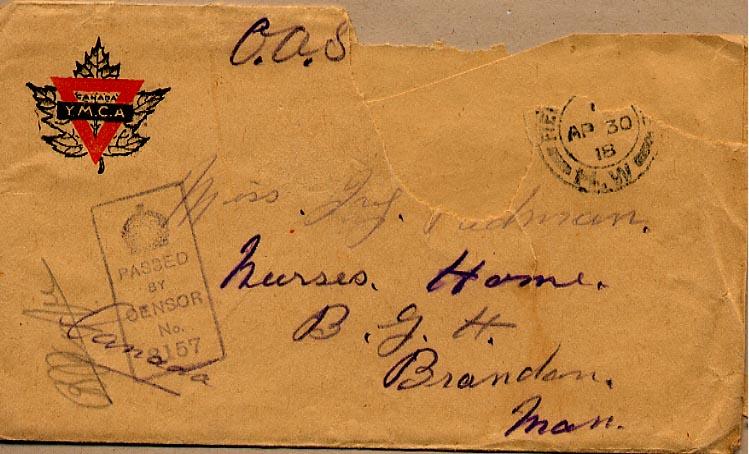 O.A.S
CANADA
Y.M.C.A
AP 30
18
H.W
Miss. Redman.
Nurses. Home.
B. G. H.
Brandon.
Man.
Canada
PASSED
BY
CENSOR
No.
3157